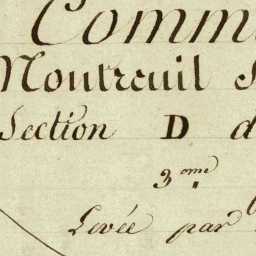 Comm
Montreuil S
Section D d
3.ome
Levée par